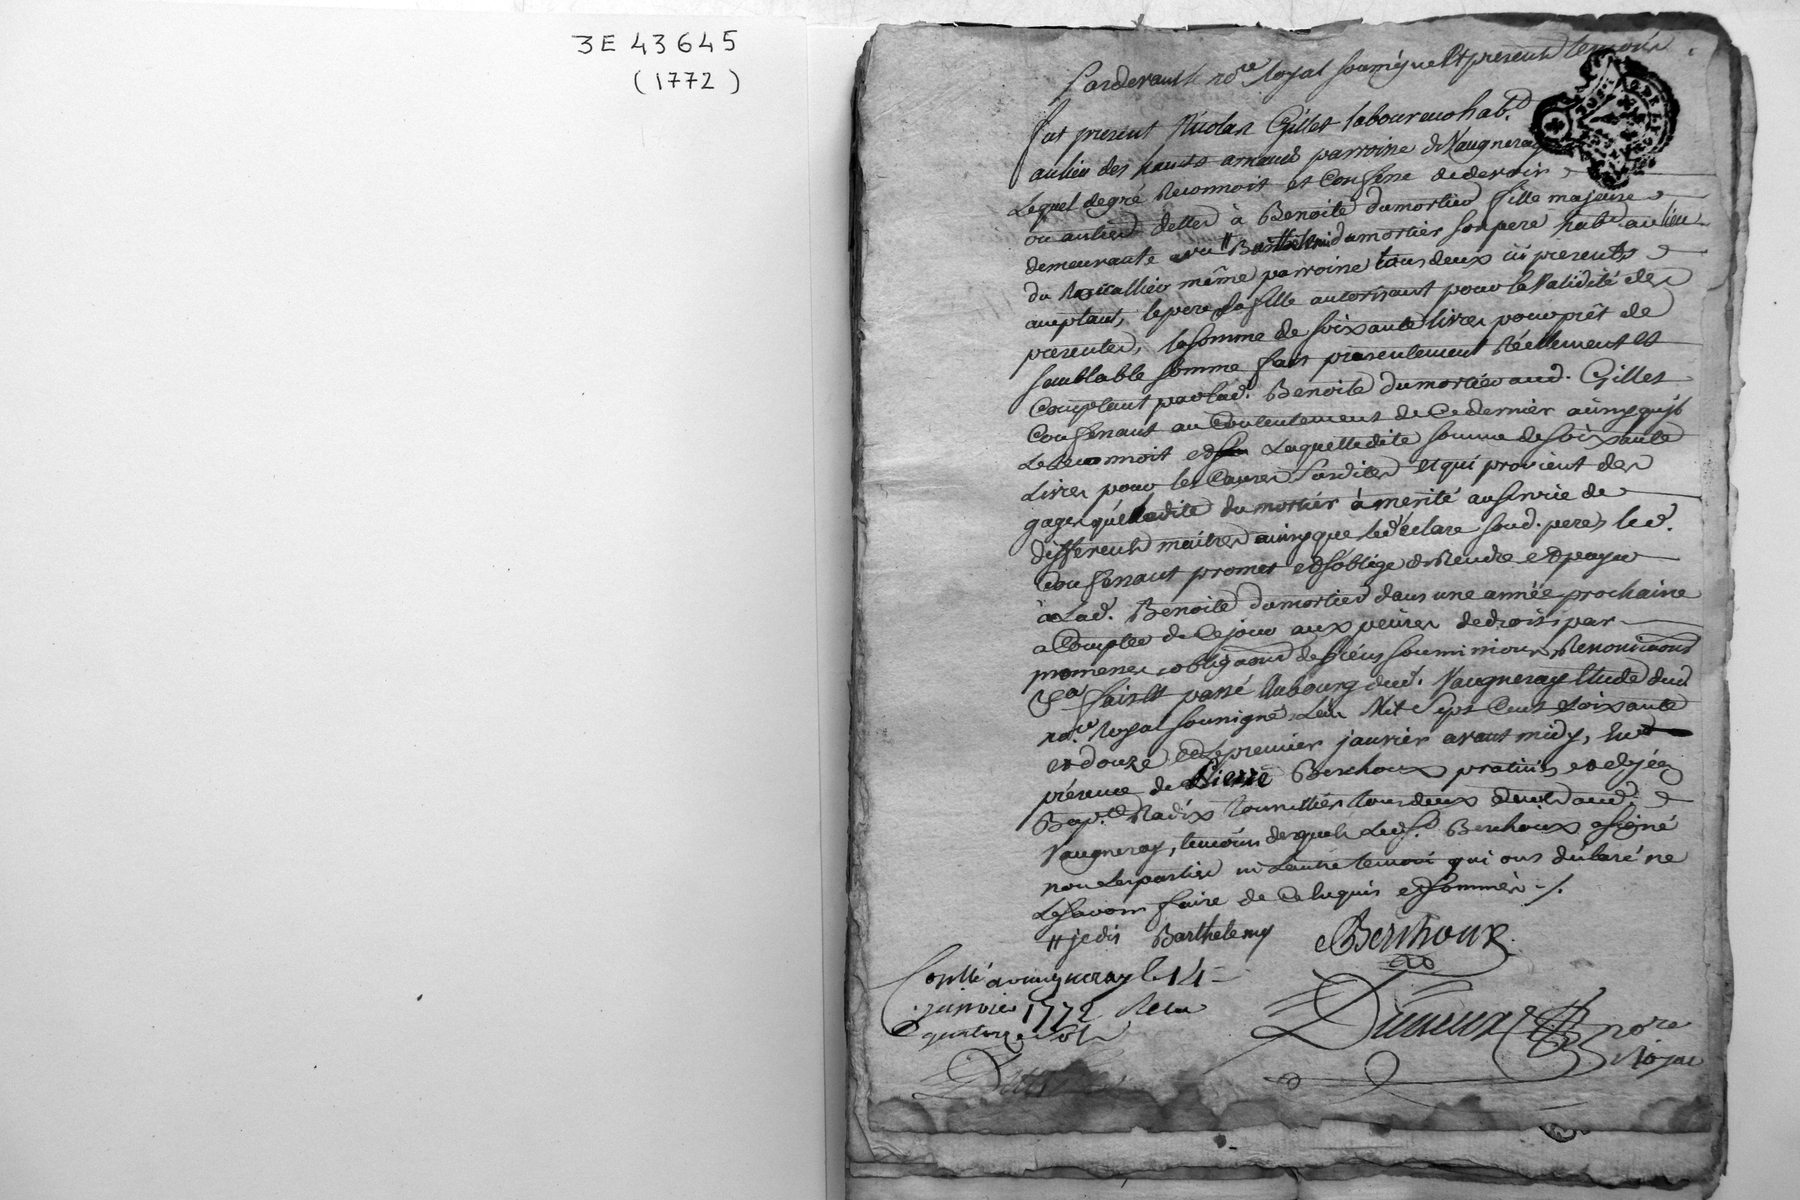 3E 43645
(1772)
Pardevant le no.re Royal soussigné et presents temoins
fut present Nicolas Gillet laboureur hab.t
au lieu des hauts arnaud parroisse de Vaugneray
Lequel de gré Reconnoit et Confesse de devoir
à Benoite dumortier fille majeure
demeurante avec // Barthelemi dumortier son pere hab.t au lieu
du même parroisse tous deux ici presents
acceptant, le pere sa fille autorisant pour la Validité des
presentes, la somme de soixante livres pour prêt de
semblable somme fait presentement Réellement et
Comptant par lad. Benoite dumortier aud. Gillet
Confessant au Contentement de Ce dernier ainsy qu'il
le Reconnoit Laquelledite somme de soixante
Livres pour les Causes susdites et qui provient des
gages que ladite dumortier à merité au service de
differents maitres ainsy que le déclare sond. pere, led.
Confessant promet et s'oblige de Rendre et payer
à Lad. Benoite dumortier dans une année prochaine
a Compter de Ce jour aux peines de droit par
promesses obligaons de biens soumissions Renonciaons
&a fait et passé au bourg dud. Vaugneray Etude dud.
no.re Royal soussigné L'an Mil Sept Cent soixante
et douze et le premier janvier avant midy, En
présence de Pierre Berchoux praticien et de jean
Bap.te Nadix tous deux dud.
Vaugneray, temoins desquels led. s.r Berchoux a signé
non les parties ni L'autre temoin qui ont déclaré ne
le savoir faire de Ce Enquis et sommés ./.
// je dis Barthelemy Berchoux
Conllé a vaugneray le 14
janvier 1772 Recu
quatorze sols
no.re
Royal